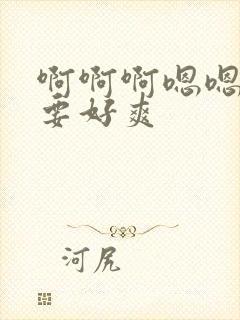 啊啊啊嗯嗯
要好爽
河尻